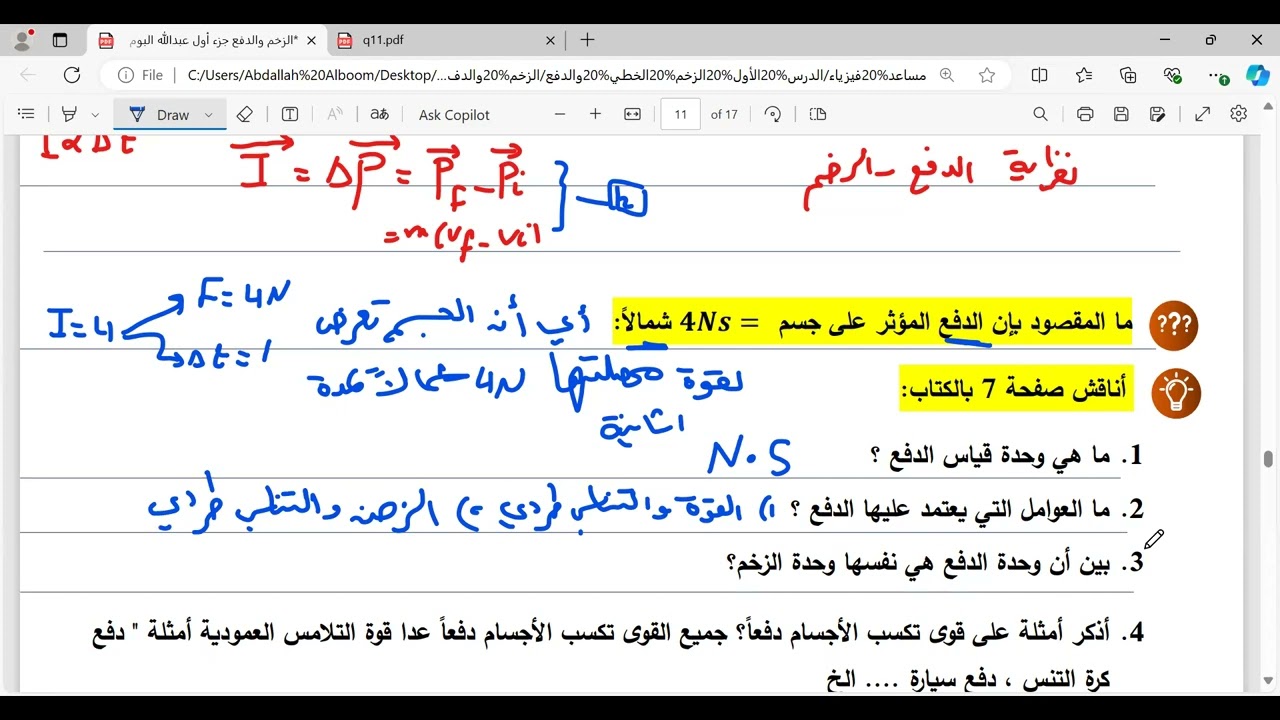 *الزخم والدفع جزء أول عبدالله البوم
q11.pdf
File
C:/Users/Abdallah%20Alboom/Desktop/مساعد%20فيزياء/الدرس%20الأول%20الزخم%20الخطي%20والدفع/الزخم%20والدف...
Draw
Ask Copilot
11 of 17
I α Δt
I = ΔP = Pf - Pi
نظرية الدفع - الزخم
= m(vf - vi)
ما المقصود بإن الدفع المؤثر على جسم = 4Ns شمالاً:
أي أن الجسم تعرض
لقوة محصلتها 4N شمالاً لمدة
1 ثانية
I = 4
F = 4N
Δt = 1
أناقش صفحة 7 بالكتاب:
1. ما هي وحدة قياس الدفع ؟
N.S
2. ما العوامل التي يعتمد عليها الدفع ؟
1) القوة والتناسب طردي 2) الزمن والتناسب طردي
3. بين أن وحدة الدفع هي نفسها وحدة الزخم؟
4. أذكر أمثلة على قوى تكسب الأجسام دفعاً؟ جميع القوى تكسب الأجسام دفعاً عدا قوة التلامس العمودية أمثلة " دفع
كرة التنس ، دفع سيارة .... الخ